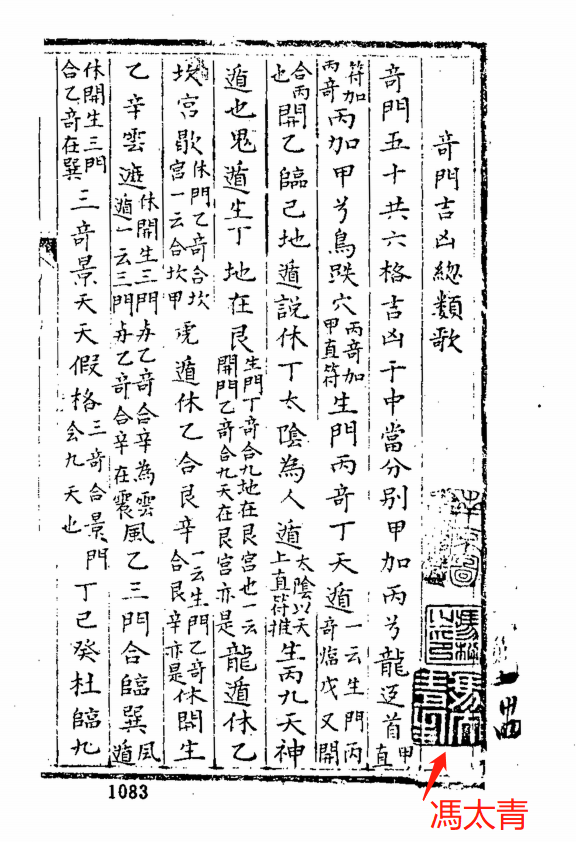 奇門吉凶總類歌
奇門五十共六格吉凶于中當分别甲加丙兮龍迈首甲直
符加丙奇丙加甲兮鳥跌穴丙奇加甲直符生門丙奇丁天遁一云生門丙奇臨戊又開
合丙也開乙臨己地遁說休丁太陰為人遁太陰以天上直符推生丙九天神
遁也鬼遁生丁地在艮生門丁奇合九地在艮宮也一云開門乙奇合九天在艮宮亦是龍遁休乙
坎宮歇休門乙奇合坎宮一云合坎甲虎遁休乙合艮辛一云生門乙奇休開生合艮辛亦是
乙辛雲遊休開生三門与乙奇合辛為雲遁一云三門与乙奇合辛在震風乙三門合臨巽風遁
休開生三門合乙奇在巽三奇景天天假格三奇合景門会九天也丁己癸杜臨九
1083
馮太青